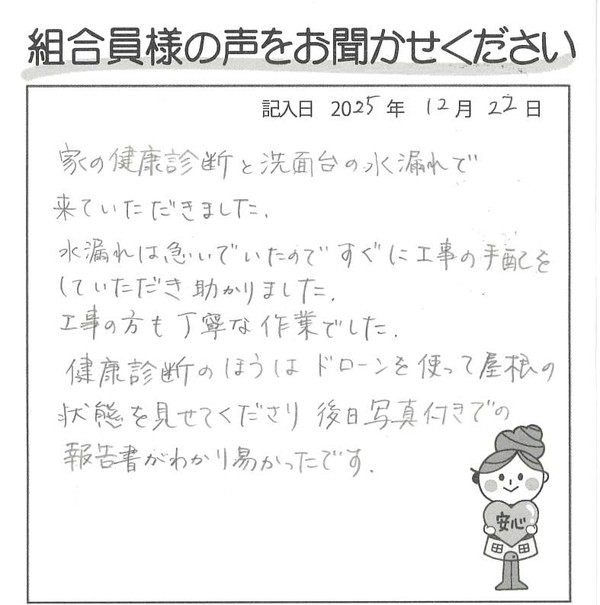 組合員様の声をお聞かせください
記入日 2025年 12月 22日
家の健康診断と洗面台の水漏れで
来ていただきました.
水漏れは急いでいたのですぐに工事の手配を
していただき助かりました.
工事の方も丁寧な作業でした.
健康診断のほうはドローンを使って屋根の
状態を見せてくださり後日写真付きでの
報告書がわかり易かったです.
安心